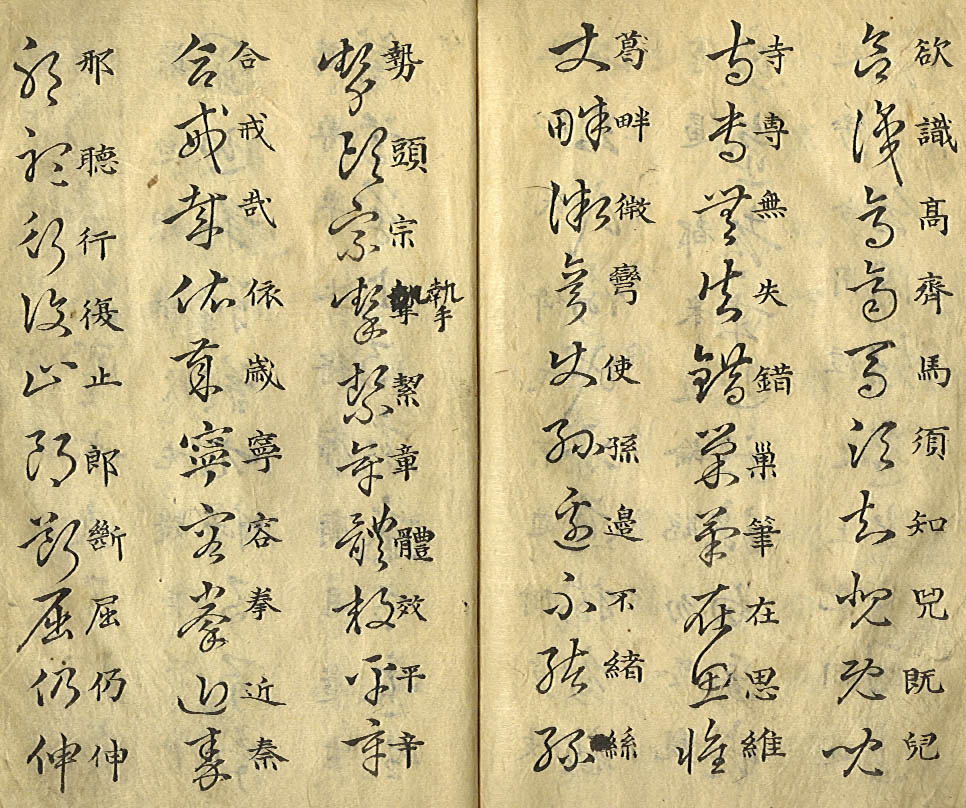 欲識高齊馬須知兕既兒
寺專無失錯巢筆在思維
葛畔微彎使孫邉不緒絲
勢頭宗摯繫章體效平辛
執手
合戒哉依歳寧容拳近秦
邢聽行復止郎斷屈仍伸